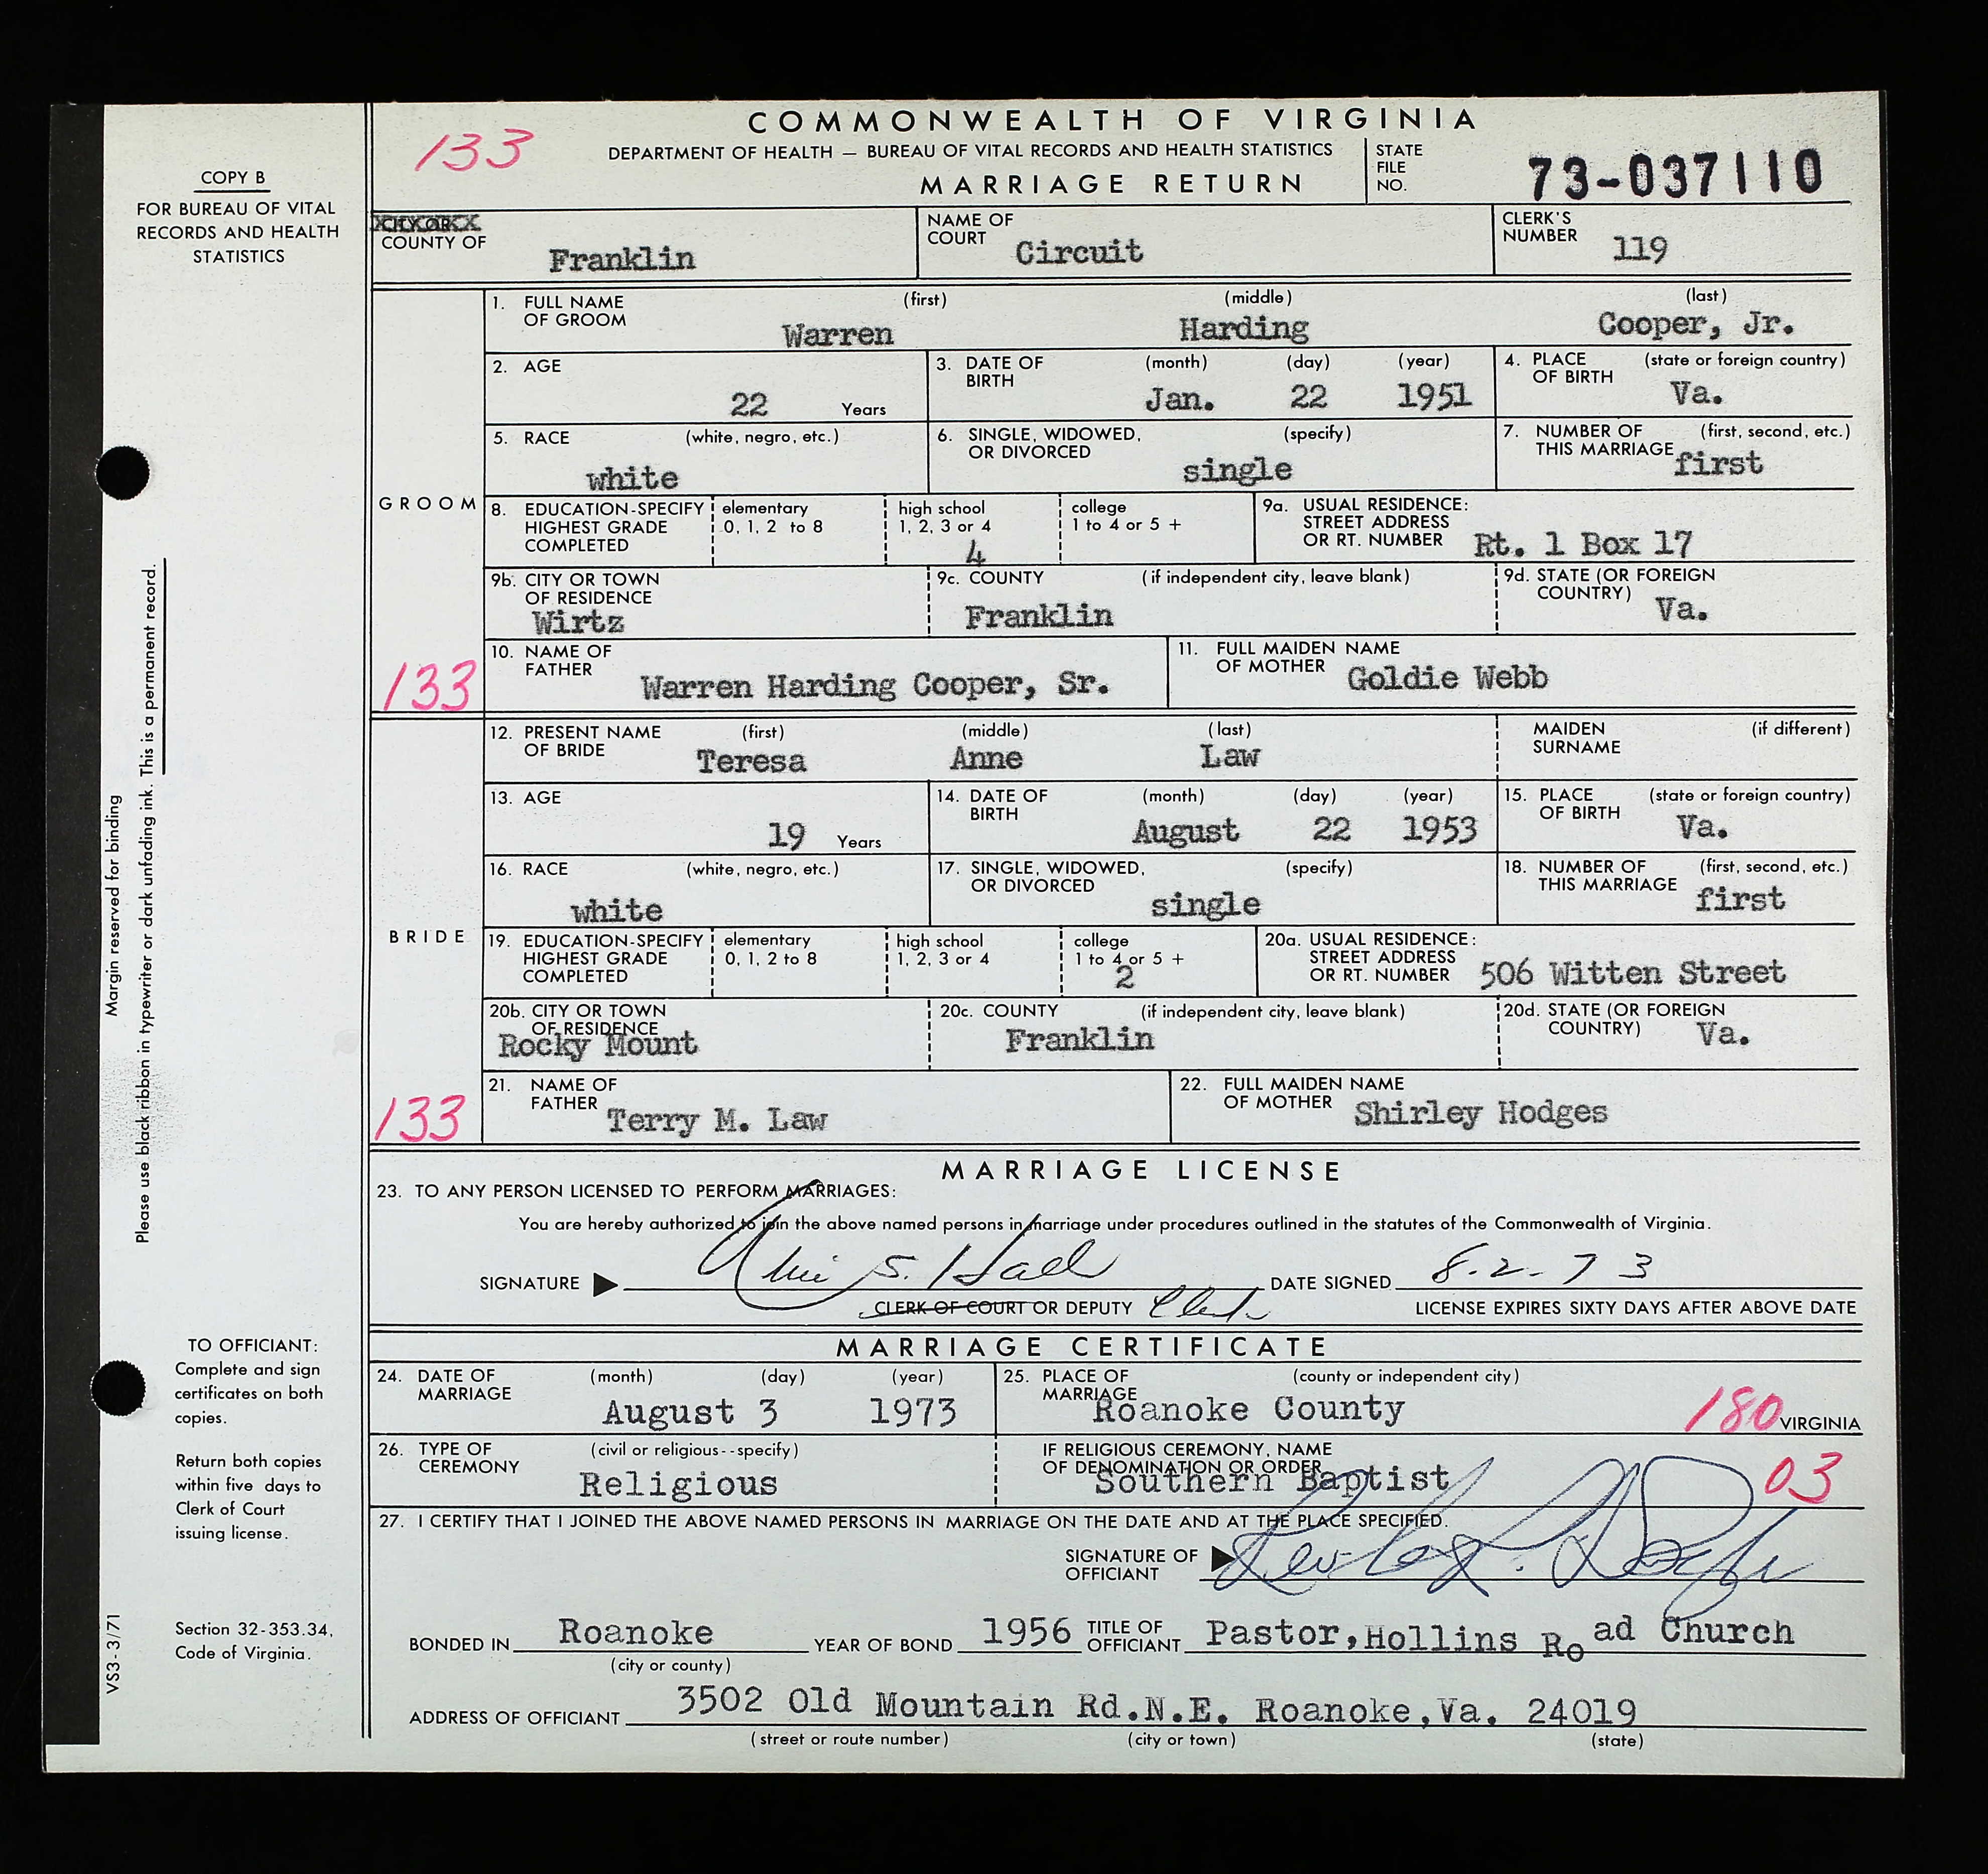 COMMONWEALTH OF VIRGINIA
133
DEPARTMENT OF HEALTH — BUREAU OF VITAL RECORDS AND HEALTH STATISTICS
MARRIAGE RETURN
STATE FILE NO. 73-037110
COPY B
FOR BUREAU OF VITAL
RECORDS AND HEALTH
STATISTICS
CITY OR
COUNTY OF Franklin
NAME OF COURT Circuit
CLERK'S NUMBER 119
GROOM
1. FULL NAME OF GROOM (first) (middle) (last)
Warren Harding Cooper, Jr.
2. AGE 22 Years
3. DATE OF BIRTH (month) (day) (year) Jan. 22 1951
4. PLACE OF BIRTH (state or foreign country) Va.
5. RACE (white, negro, etc.) white
6. SINGLE, WIDOWED, OR DIVORCED (specify) single
7. NUMBER OF THIS MARRIAGE (first, second, etc.) first
8. EDUCATION-SPECIFY HIGHEST GRADE COMPLETED
elementary 0, 1, 2 to 8
high school 1, 2, 3 or 4 4
college 1 to 4 or 5 +
9a. USUAL RESIDENCE: STREET ADDRESS OR RT. NUMBER Rt. 1 Box 17
9b. CITY OR TOWN OF RESIDENCE Wirtz
9c. COUNTY (if independent city, leave blank) Franklin
9d. STATE (OR FOREIGN COUNTRY) Va.
133
10. NAME OF FATHER Warren Harding Cooper, Sr.
11. FULL MAIDEN NAME OF MOTHER Goldie Webb
BRIDE
12. PRESENT NAME OF BRIDE (first) (middle) (last) Teresa Anne Law
MAIDEN SURNAME (if different)
13. AGE 19 Years
14. DATE OF BIRTH (month) (day) (year) August 22 1953
15. PLACE OF BIRTH (state or foreign country) Va.
16. RACE (white, negro, etc.) white
17. SINGLE, WIDOWED, OR DIVORCED (specify) single
18. NUMBER OF THIS MARRIAGE (first, second, etc.) first
19. EDUCATION-SPECIFY HIGHEST GRADE COMPLETED
elementary 0, 1, 2 to 8
high school 1, 2, 3 or 4
college 1 to 4 or 5 + 2
20a. USUAL RESIDENCE: STREET ADDRESS OR RT. NUMBER 506 Witten Street
20b. CITY OR TOWN OF RESIDENCE Rocky Mount
20c. COUNTY (if independent city, leave blank) Franklin
20d. STATE (OR FOREIGN COUNTRY) Va.
133
21. NAME OF FATHER Terry M. Law
22. FULL MAIDEN NAME OF MOTHER Shirley Hodges
MARRIAGE LICENSE
23. TO ANY PERSON LICENSED TO PERFORM MARRIAGES:
You are hereby authorized to join the above named persons in marriage under procedures outlined in the statutes of the Commonwealth of Virginia.
SIGNATURE S. Hall DATE SIGNED 8-2-73
CLERK OF COURT OR DEPUTY Clerk LICENSE EXPIRES SIXTY DAYS AFTER ABOVE DATE
MARRIAGE CERTIFICATE
24. DATE OF MARRIAGE (month) (day) (year) August 3 1973
25. PLACE OF MARRIAGE (county or independent city) Roanoke County 180 VIRGINIA
26. TYPE OF CEREMONY (civil or religious--specify) Religious
IF RELIGIOUS CEREMONY, NAME OF DENOMINATION OR ORDER Southern Baptist 03
27. I CERTIFY THAT I JOINED THE ABOVE NAMED PERSONS IN MARRIAGE ON THE DATE AND AT THE PLACE SPECIFIED.
SIGNATURE OF OFFICIANT
BONDED IN Roanoke YEAR OF BOND 1956 TITLE OF OFFICIANT Pastor, Hollins Road Church
(city or county)
ADDRESS OF OFFICIANT 3502 Old Mountain Rd.N.E. Roanoke,Va. 24019
(street or route number) (city or town) (state)
Margin reserved for binding
Please use black ribbon in typewriter or dark unfading ink. This is a permanent record.
TO OFFICIANT:
Complete and sign
certificates on both
copies.
Return both copies
within five days to
Clerk of Court
issuing license.
Section 32-353.34,
Code of Virginia.
VS3-3/71